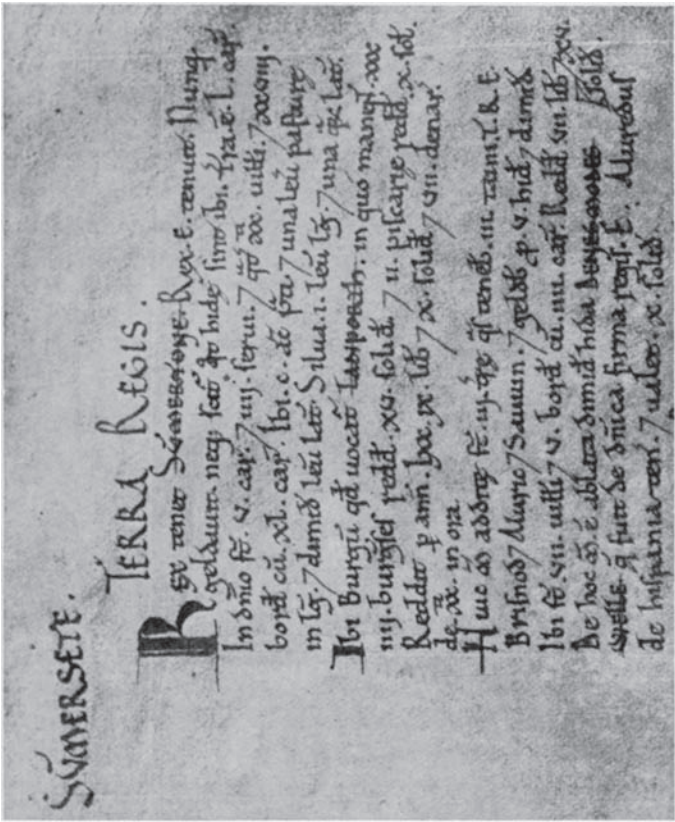 SUMERSETE.
TERRA REGIS.
Rex tenet SUMERTONE. Rex. E. tenuit. Nunq̄
geldauit neq; scit̄ q̄t hidę sint ibi. Tr̄a. ē. L. car̄.
In dn̄io st̄. v. car̄. 7 iiij. serui. 7 qt̄ xx. uitti. 7 xxviij.
bord̄ cū. xL. car̄. Ibi. c. ac̄ p̄ti. 7 una leū pasturę
in lḡ. 7 dimid̄ leū lat̄. Silua. i. leū lḡ. 7 una q̄ȝ lat̄.
Ibi burgū qd̄ uocat̄ LANPORTH. in quo maneṫ. xxx
iiij. burgses redd̄. xv. solid̄. 7 ii. piscarię redd̄. x. sol̄.
Reddit p ann̄. lxx. ix. lib̄ 7 x. solid̄ 7 vii. denar̄.
de. xx. in ora
Huic m̄ addiṫę st̄. iij. tr̄ę q̄s teneb̄. iii. taini. T.R.E.
Brisnod 7 Aluric 7 Sauuin. 7 geldb̄ p. v. hid̄ 7 dimid̄
Ibi st̄. vii. uitti 7 v. bord̄ cū. iiii. car̄. Redd̄. vii. lib̄ 7 xv.
De hoc m̄. ē ablata dimid̄ hida solid̄.
q̄ fuit de dn̄ica firma regis. E. Aluredus
de hispania ten̄. 7 ualet. x. solid̄